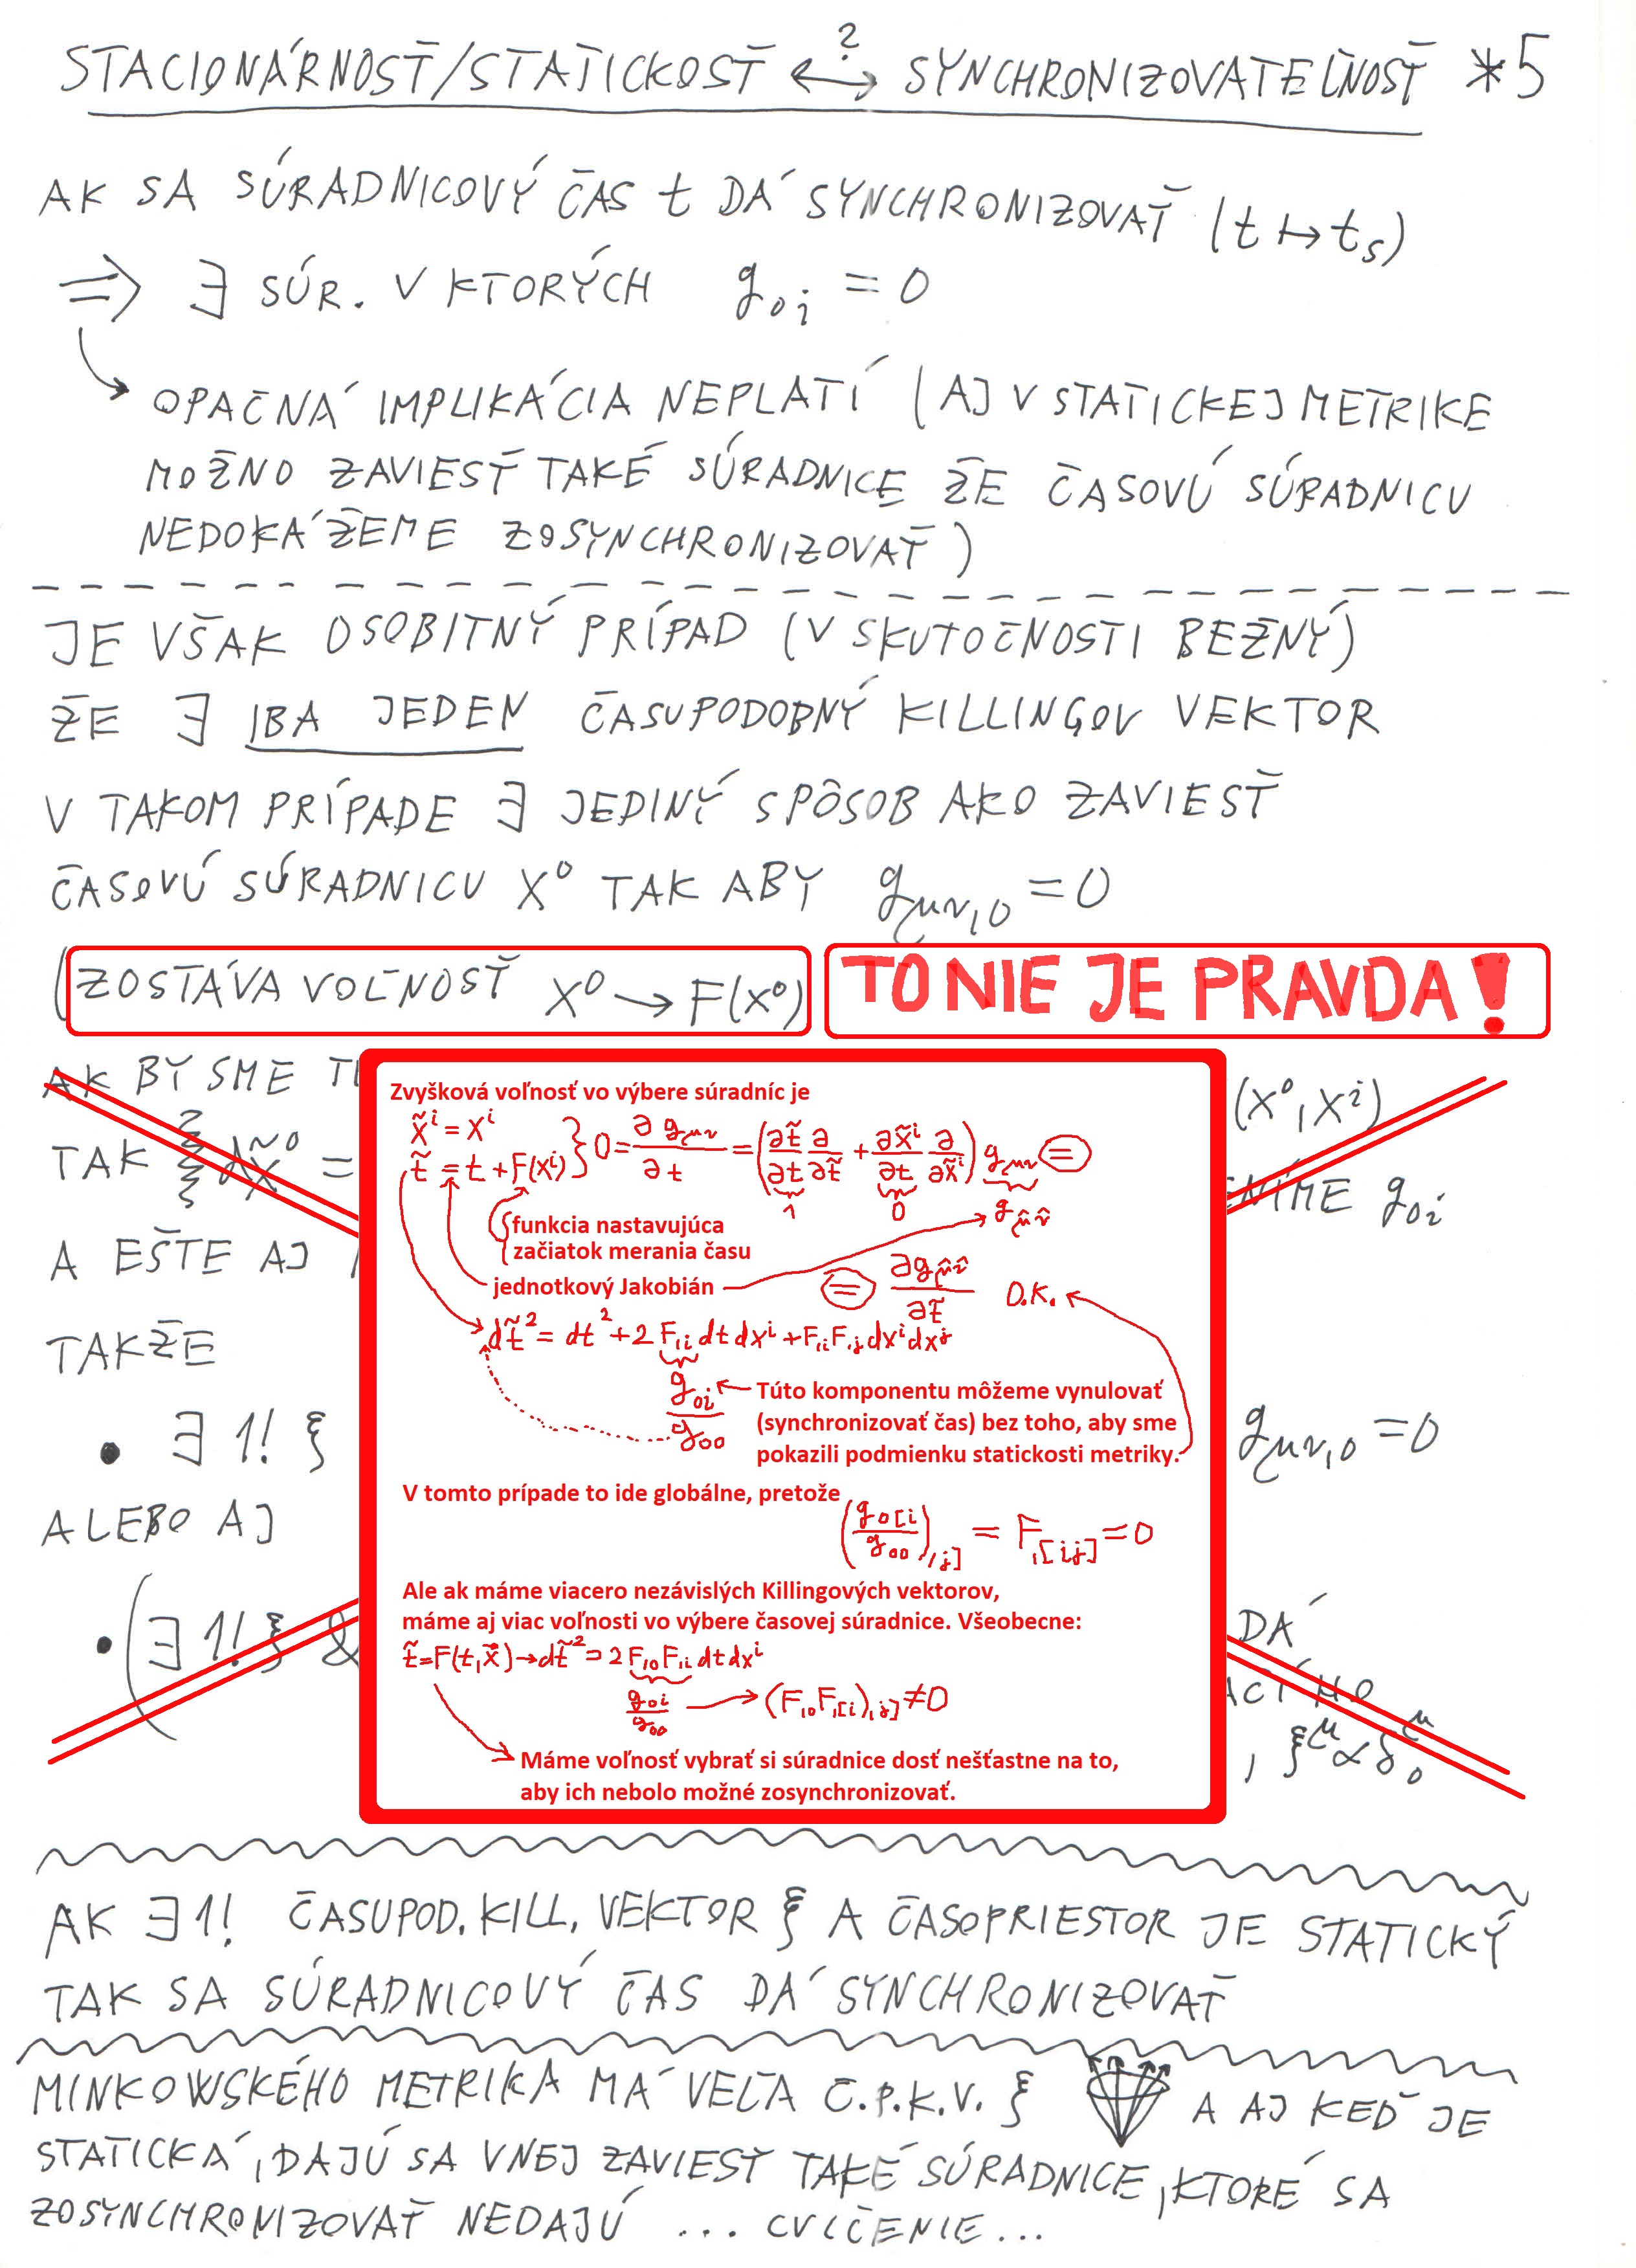 STACIONÁRNOSŤ/STATICKOSŤ <-?-> SYNCHRONIZOVATEĽNOSŤ *5
AK SA SÚRADNICOVÝ ČAS t DÁ SYNCHRONIZOVAŤ (t ↦ t_s)
⇒ ∃ SÚR. V KTORÝCH g_{0i} = 0
OPAČNÁ IMPLIKÁCIA NEPLATÍ (AJ V STATICKEJ METRIKE
MOŽNO ZAVIESŤ TAKÉ SÚRADNICE ŽE ČASOVÚ SÚRADNICU
NEDOKÁŽEME ZOSYNCHRONIZOVAŤ)
JE VŠAK OSOBITNÝ PRÍPAD (V SKUTOČNOSTI BEŽNÝ)
ŽE ∃ IBA JEDEN ČASUPODOBNÝ KILLINGOV VEKTOR
V TAKOM PRÍPADE ∃ JEDINÝ SPÔSOB AKO ZAVIESŤ
ČASOVÚ SÚRADNICU X⁰ TAK ABY g_{μν,0} = 0
(ZOSTÁVA VOĽNOSŤ X⁰ → F(X⁰) TO NIE JE PRAVDA!
AK BY SME (X⁰, X^i)
TAK dx̃⁰ = g_{0i}
A EŠTE AJ
TAKŽE
• ∃ 1! ξ g_{μν,0} = 0
ALEBO AJ
• (∃ 1! ξ & DÁ
, ξ^μ ∝ δ^μ_0
Zvyšková voľnosť vo výbere súradníc je
x̃^i = x^i
t̃ = t + F(x^i) } 0 = ∂g_{μν}/∂t = (∂t̃/∂t ∂/∂t̃ + ∂x̃^i/∂t ∂/∂x̃^i) g_{μν} =
1 0 g_{μ̂ν̂}
funkcia nastavujúca
začiatok merania času
jednotkový Jakobián
= ∂g_{μ̂ν̂}/∂t̃ O.K.
dt̃² = dt² + 2 F_{,i} dt dx^i + F_{,i} F_{,j} dx^i dx^j
g_{0i}/g_{00} Túto komponentu môžeme vynulovať
(synchronizovať čas) bez toho, aby sme
pokazili podmienku statickosti metriky.
V tomto prípade to ide globálne, pretože
(g_{0[i}/g_{00})_{,j]} = F_{,[ij]} = 0
Ale ak máme viacero nezávislých Killingových vektorov,
máme aj viac voľnosti vo výbere časovej súradnice. Všeobecne:
t̃ = F(t, x⃗) → dt̃² ⊃ 2 F_{,0} F_{,i} dt dx^i
g_{0i}/g_{00} → (F_{,0} F_{,[i})_{,j]} ≠ 0
Máme voľnosť vybrať si súradnice dosť nešťastne na to,
aby ich nebolo možné zosynchronizovať.
AK ∃ 1! ČASUPOD. KILL. VEKTOR ξ A ČASOPRIESTOR JE STATICKÝ
TAK SA SÚRADNICOVÝ ČAS DÁ SYNCHRONIZOVAŤ
MINKOWSKÉHO METRIKA MÁ VEĽA Č.P.K.V. ξ A AJ KEĎ JE
STATICKÁ, DAJÚ SA V NEJ ZAVIESŤ TAKÉ SÚRADNICE, KTORÉ SA
ZOSYNCHRONIZOVAŤ NEDAJÚ ... CVIČENIE...